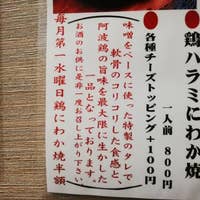 鶏ハラミにわか焼
一人前 800円
●各種チーズトッピング+100円
味噌をベースに使った特製のタレで
軟骨のコリコリした食感と、
阿波鶏の旨味を最大限に生かした
一品となっております。
お酒のお供に是非一度お召し上がり下さい。
毎月第一水曜日鶏にわか焼半額